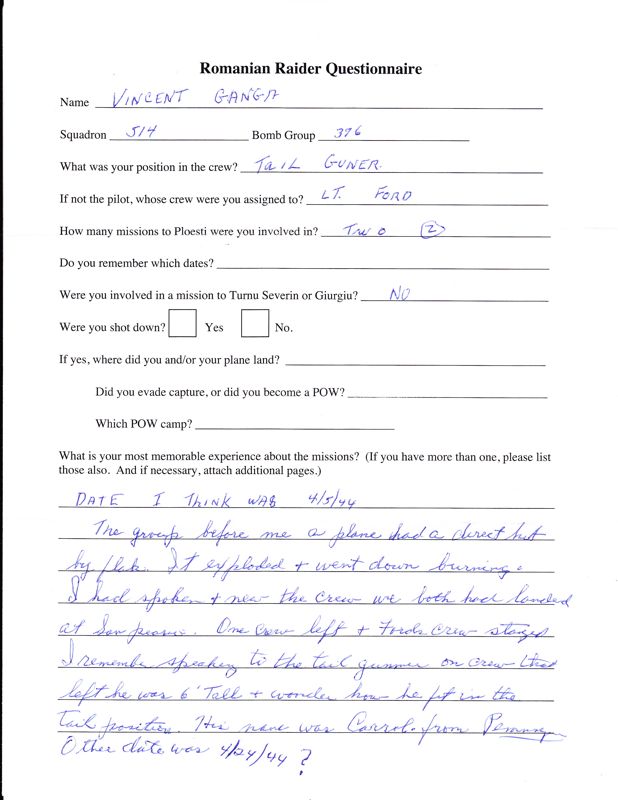 Romanian Raider Questionnaire
Name VINCENT GANGA
Squadron 514 Bomb Group 376
What was your position in the crew? TAIL GUNER.
If not the pilot, whose crew were you assigned to? LT. FORD
How many missions to Ploesti were you involved in? TWO 2
Do you remember which dates?
Were you involved in a mission to Turnu Severin or Giurgiu? NO
Were you shot down? Yes No.
If yes, where did you and/or your plane land?
Did you evade capture, or did you become a POW?
Which POW camp?
What is your most memorable experience about the missions? (If you have more than one, please list
those also. And if necessary, attach additional pages.)
DATE I THINK WAS 4/5/44
The group before me a plane had a direct hit
by flak. It exploded + went down burning.
I had spoken + new the crew we both had landed
at San . One crew left + Fords crew stayed
I remember speaking to the tail gunner on crew that
left he was 6' Tall + wonder how he fit in the
tail position. His name was Carrol. from
Other date was 4/24/44 ?